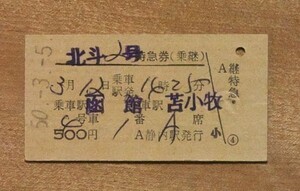 北斗2号特急券(乗継)
50.-3.-5
3月12日 乗車駅発 14時25分
乗車駅 函館 乗車駅 苫小牧
8号車 1番A席
500円 A静内駅発行
小
④